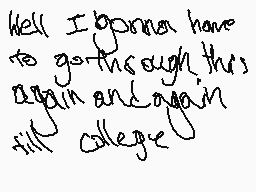 Well I gonna have
to go through this
again and again
till college